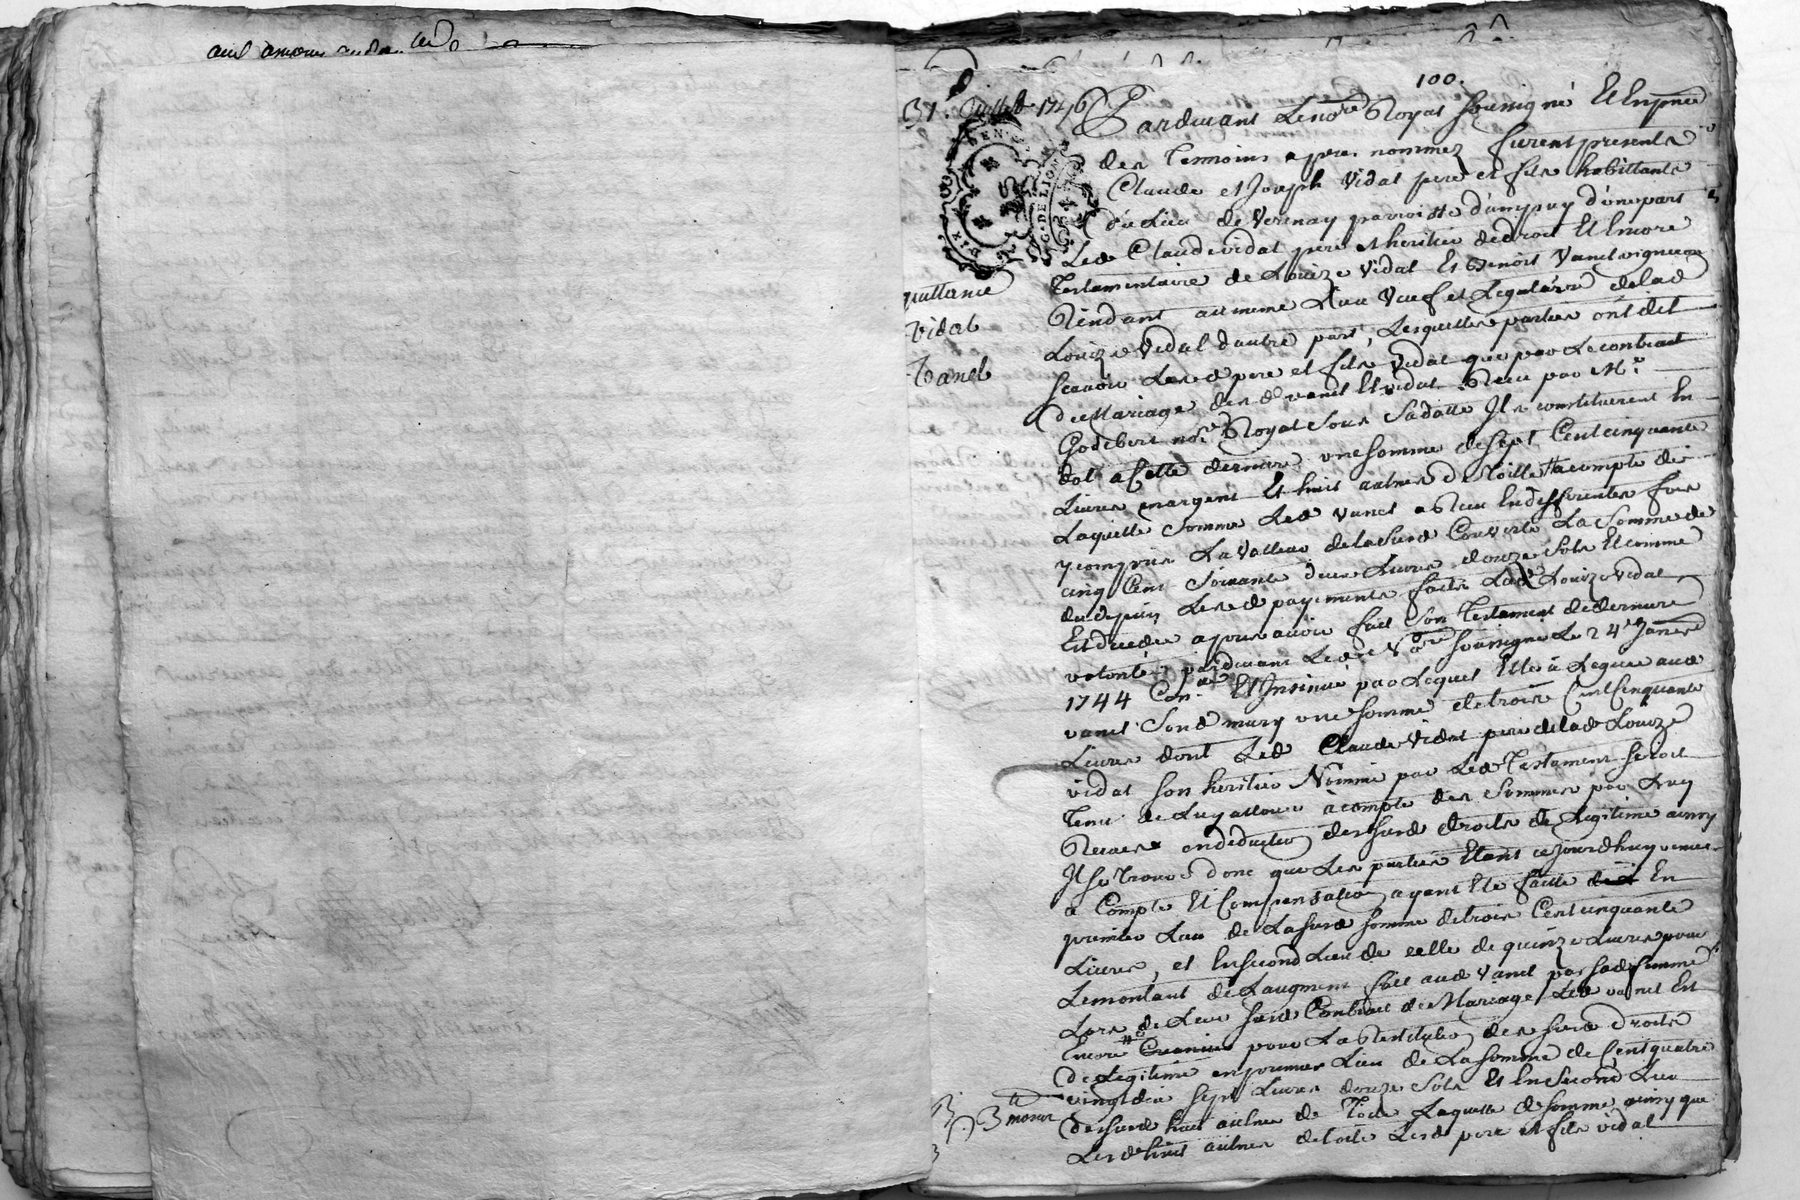 100.
31e Juillet 1746
GEN
G. DE LION
DIX
quittance
Vidal
Vanel
Pardevant Le no.re Royal soussigné Et En pnce
des Temoins apres nommez furent presents
Claude et Joseph Vidal pere et fils habittants
du Lieu de Verenay parroisse d'ampuy d'une part
Led Claude vidal pere et heritier de droit Et Encore
Testamentaire de Louize Vidal Et Benoit Vanel vigneron
Residant au meme Lieu Veuf et Legatere de lad
Louize Vidal d'autre part, Lesquelles parties ont dit
scavoir Lesd pere et fils Vidal que par Le contrat
de Mariage desd vanel Et vidal Receu par Me
Godebert no.re Royal sous sa datte Ils constituerent En
dot a Cette derniere une somme de sept Cent cinquante
Livres en argent Et huit aulnes de Toille a compte de
Laquelle somme Led Vanel a Receu En differentes fois
y compris La Valleur de la susd Couverte La somme de
cinq Cent soixante deux Livres douze sols Et comme
du depuis Lesd payements faits Lad Louize Vidal
Est decedée apres avoir fait son Testament de derniere
volonté pardevant Led no.re soussigné Le 24e Janvier
1744 Con.lé Et Insinué par Lequel Elle a Legué aud
vanel son d mary une somme de trois Cent Cinquante
Livres dont Led Claude Vidal pere de lad Louize
vidal son heritier Nommé par Led Testament seroit
Tenu de Luy allouer a compte des sommes par Luy
Receues en deduction des susd droits de Legitime ainsy
Il se Trouve donc que Les parties Etant ce jourdhuy venues
a Compte Et Compensation ayant Eté faitte En
premier Lieu de La susd somme de trois Cent cinquante
Livres, et En second Lieu de celle de quinze Livres pour
Le montant de L'augment fait aud Vanel par sad femme
Lors de Leur susd Contrat de Mariage, Led vanel Est
Encore pour La Restitution des susd droits
de Legitime en premier Lieu de La somme de Cent quatre
vingt dix sept Livres douze sols Et En second Lieu
des susd huit aulnes de Toile Laquelle d somme ainsy que
Lesd huit aulnes de toile Lesd pere et fils vidal